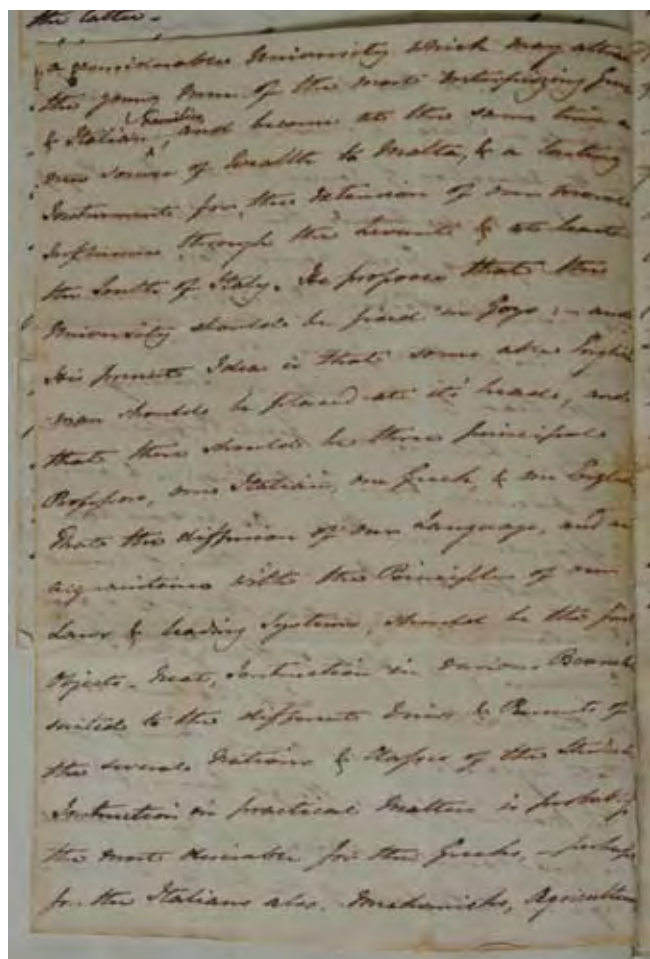 the latter -
a considerable University which may attract
the young men of the most enterprizing Greek
& Italian Families, and become at the same time a
new source of Wealth to Malta, & a lasting
Instrument for the extension of our moral
Influence through the Levant & at least
the South of Italy. He proposes that this
University should be fixed in Gozo; - and
his present Idea is that some able English
man should be placed at it's head, and
that there should be three principal
Professors, one Italian, one Greek, & one English
That the diffusion of our Language, and an
acquaintance with the Principles of our
Laws & leading Systems, should be the first
Objects. Next, Instruction in various Branches
suited to the different Views & Pursuits of
the several Nations & Classes of the Students
Instruction in practical Matters is probably
the most desirable for the Greeks, - perhaps
for the Italians also. Mechanicks, Agriculture